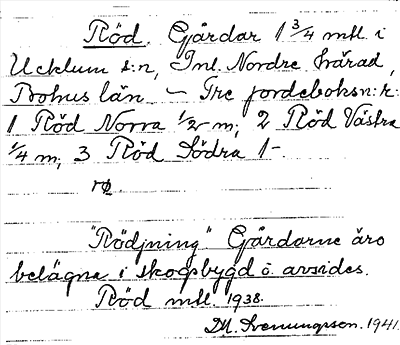 Röd. Gårdar 1 3/4 mtl. i
Ucklum s:n, Inl. Nordre härad,
Bohus län. – Tre jordeboksn:r:
1 Röd Norra 1/2 m; 2 Röd Västra
1/4 m; 3 Röd Södra 1-.
rø
"Rödjning" Gårdarne äro
belägna i skogsbygd o. avsides.
Röd mtl. 1938.
M. Svenungsson. 1941.